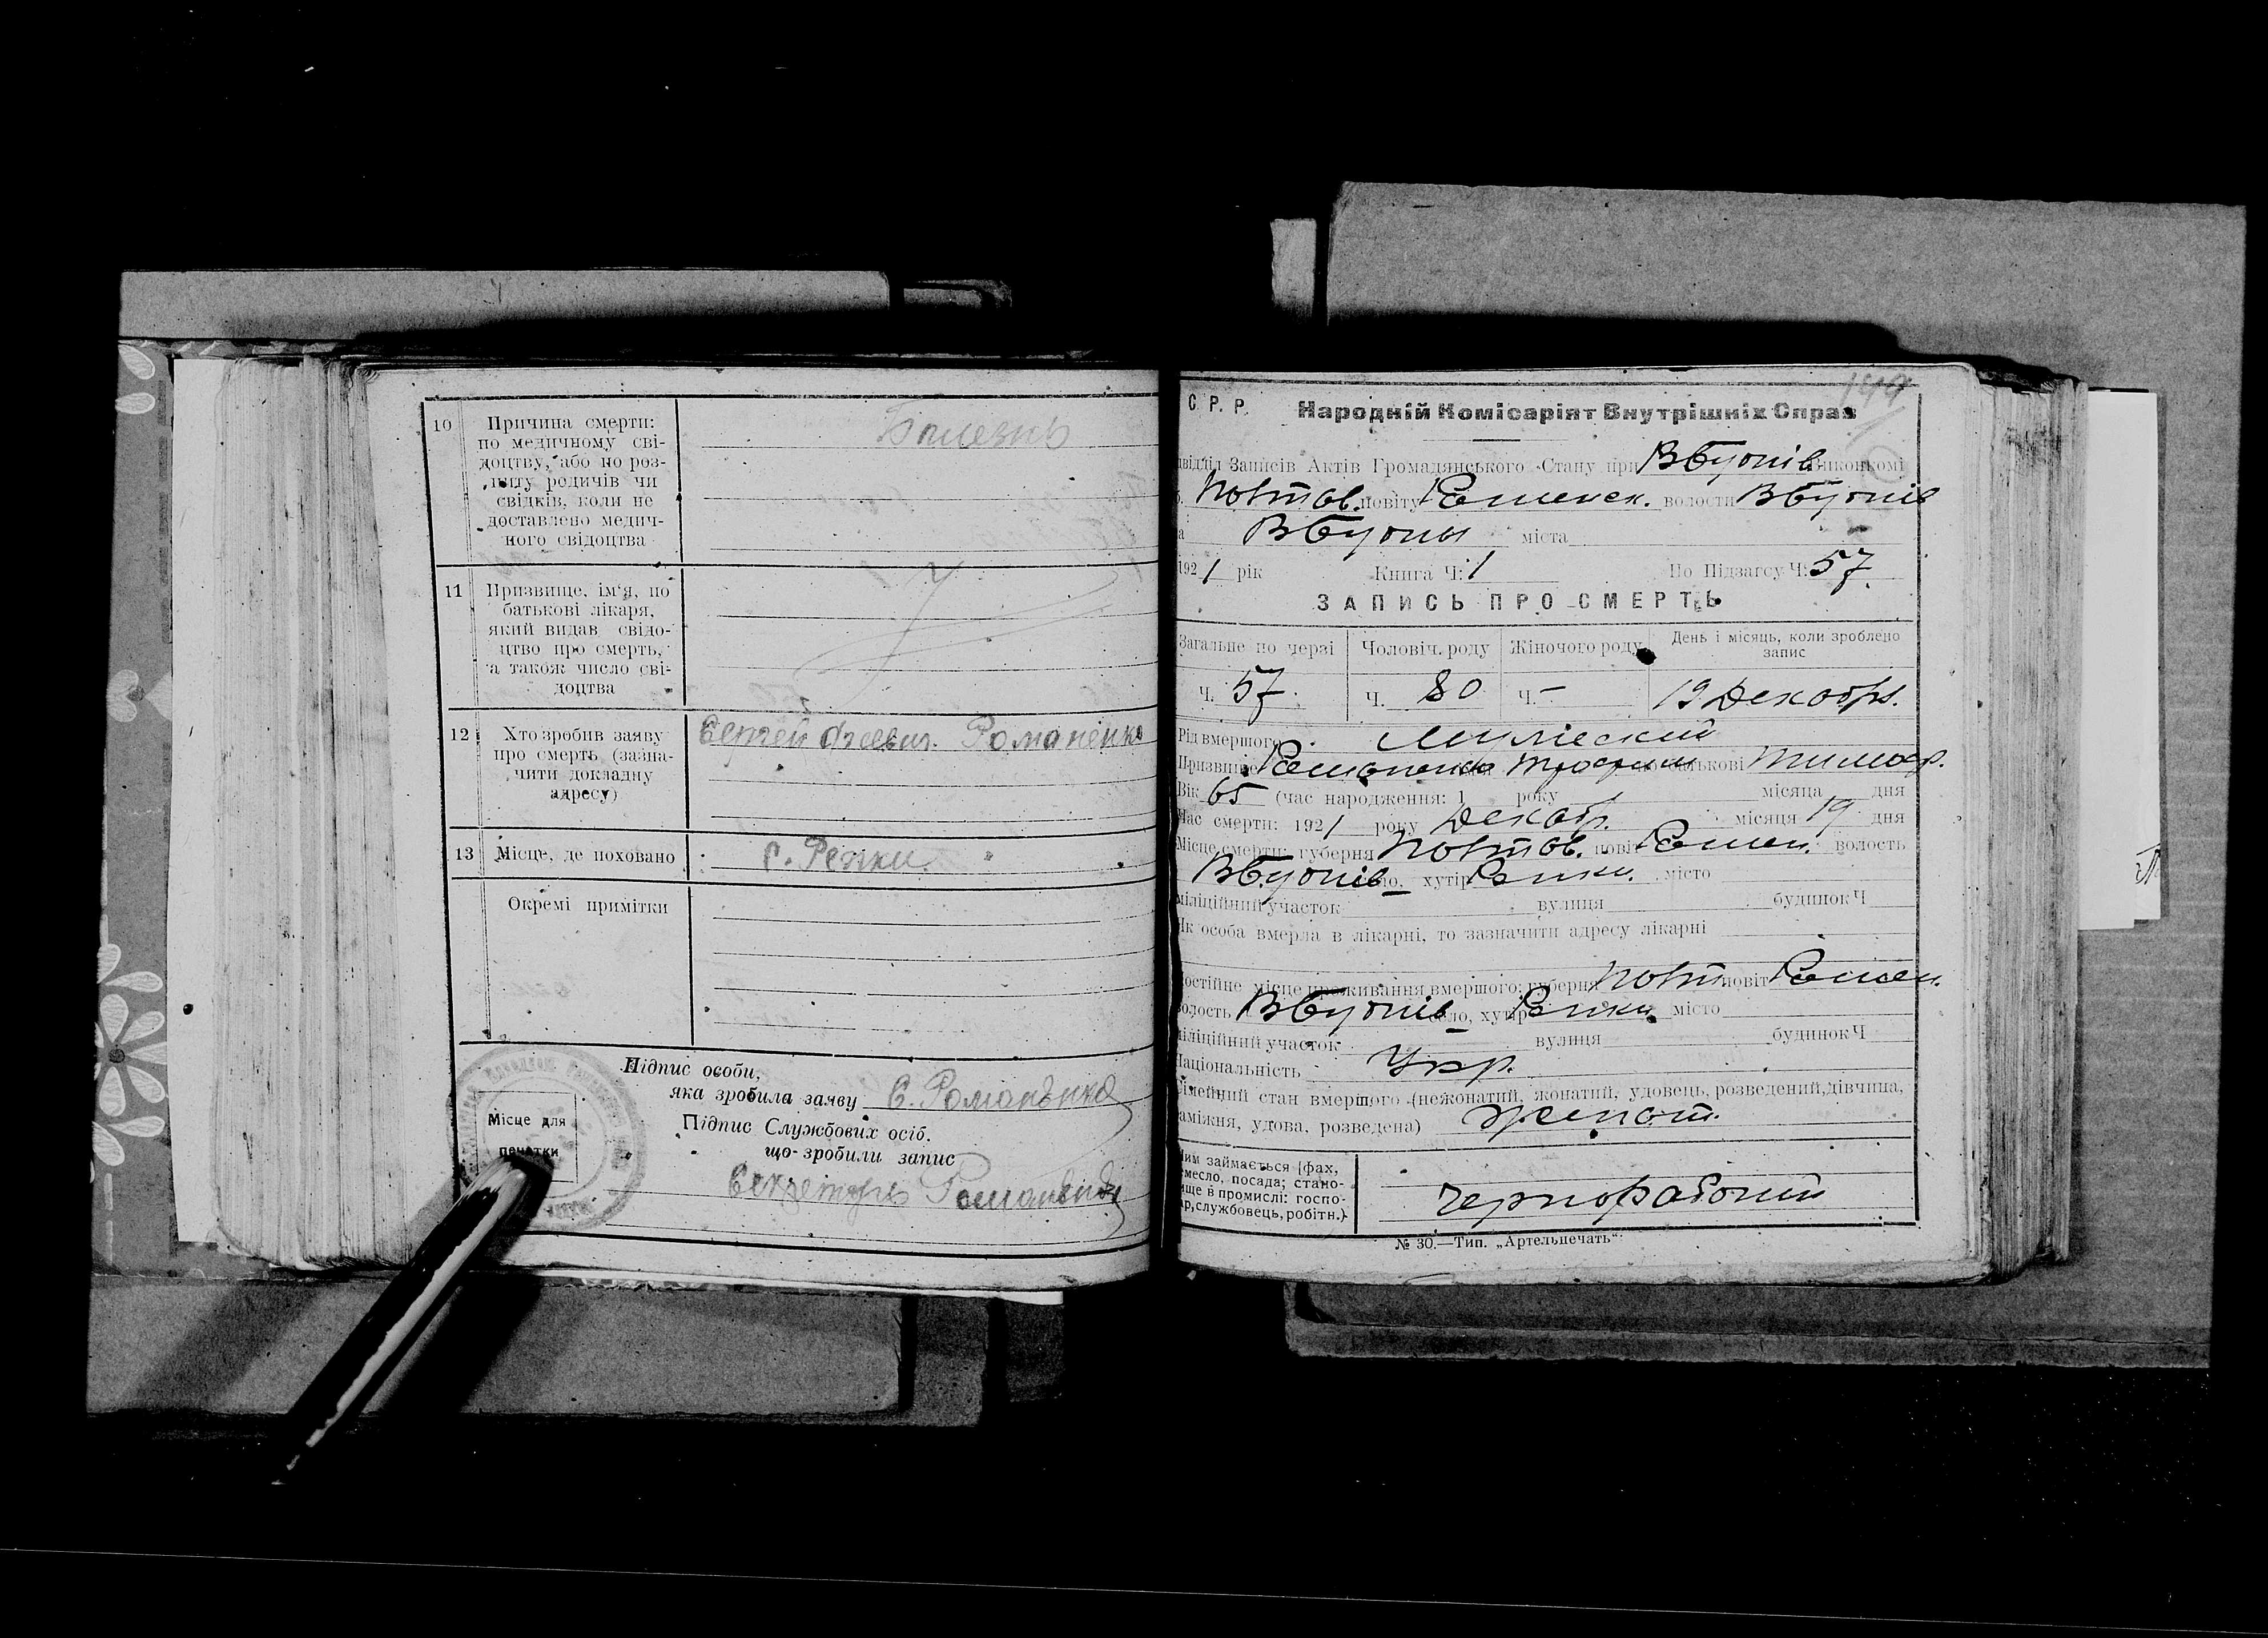 10 Причина смерти: Болезнь
по медичному сві-
доцтву, або по роз-
питу родичів чи
свідків, коли не
доставлено медич-
ного свідоцтва
11 Призвище, ім'я, по
батькові лікаря,
який видав свідо-
цтво про смерть,
а також число сві-
доцтва
12 Хто зробив заяву Сергей Романенко
про смерть (зазна-
чити докладну
адресу)
13 Місце, де поховано с. Репки
Окремі примітки
Підпис особи,
яка зробила заяву С. Романенко
Місце для
печатки
Підпис Службових осіб.
що зробили запис
Секретарь Романенко
149
С. Р. Р. Народній Комісаріят Внутрішніх Справ
двідділ Записів Актів Громадянського Стану при Виконкомі
Полтав. повіту Ромен. волости
міста
1921 рік Книга Ч: 1 По Підзагсу Ч: 57
ЗАПИСЬ ПРО СМЕРТЬ
Загальне по черзі Чоловіч. роду Жіночого роду День і місяць, коли зроблено
запис
Ч. 57 Ч. 80 Ч. – 19 Декабря.
Рід вмершого Мужеский
Призвище Романенко Трофим по батькові Тимоф.
Вік 65 (час народження: 1 року місяца дня
Час смерти: 1921 року Декабр. місяця 19 дня
Місце смерти: губерня Полтав. повіт Ромен. волость
хутір Репки. місто
міліційний участок вулиця будинок Ч
Як особа вмерла в лікарні, то зазначити адресу лікарні
Постійне місце проживання вмершого: губерня Полт повіт Ромен.
волость село, хутір Репки місто
міліційний участок вулиця будинок Ч
Національність Укр.
Сімейний стан вмершого (нежонатий, жонатий, удовець, розведений, дівчина,
заміжня, удова, розведена) женат.
Чим займається (фах,
ремесло, посада; стано-
вище в промислі: госпо-
дар, службовець, робітн.) Чернорабочий
№ 30.—Тип. „Артельпечать“